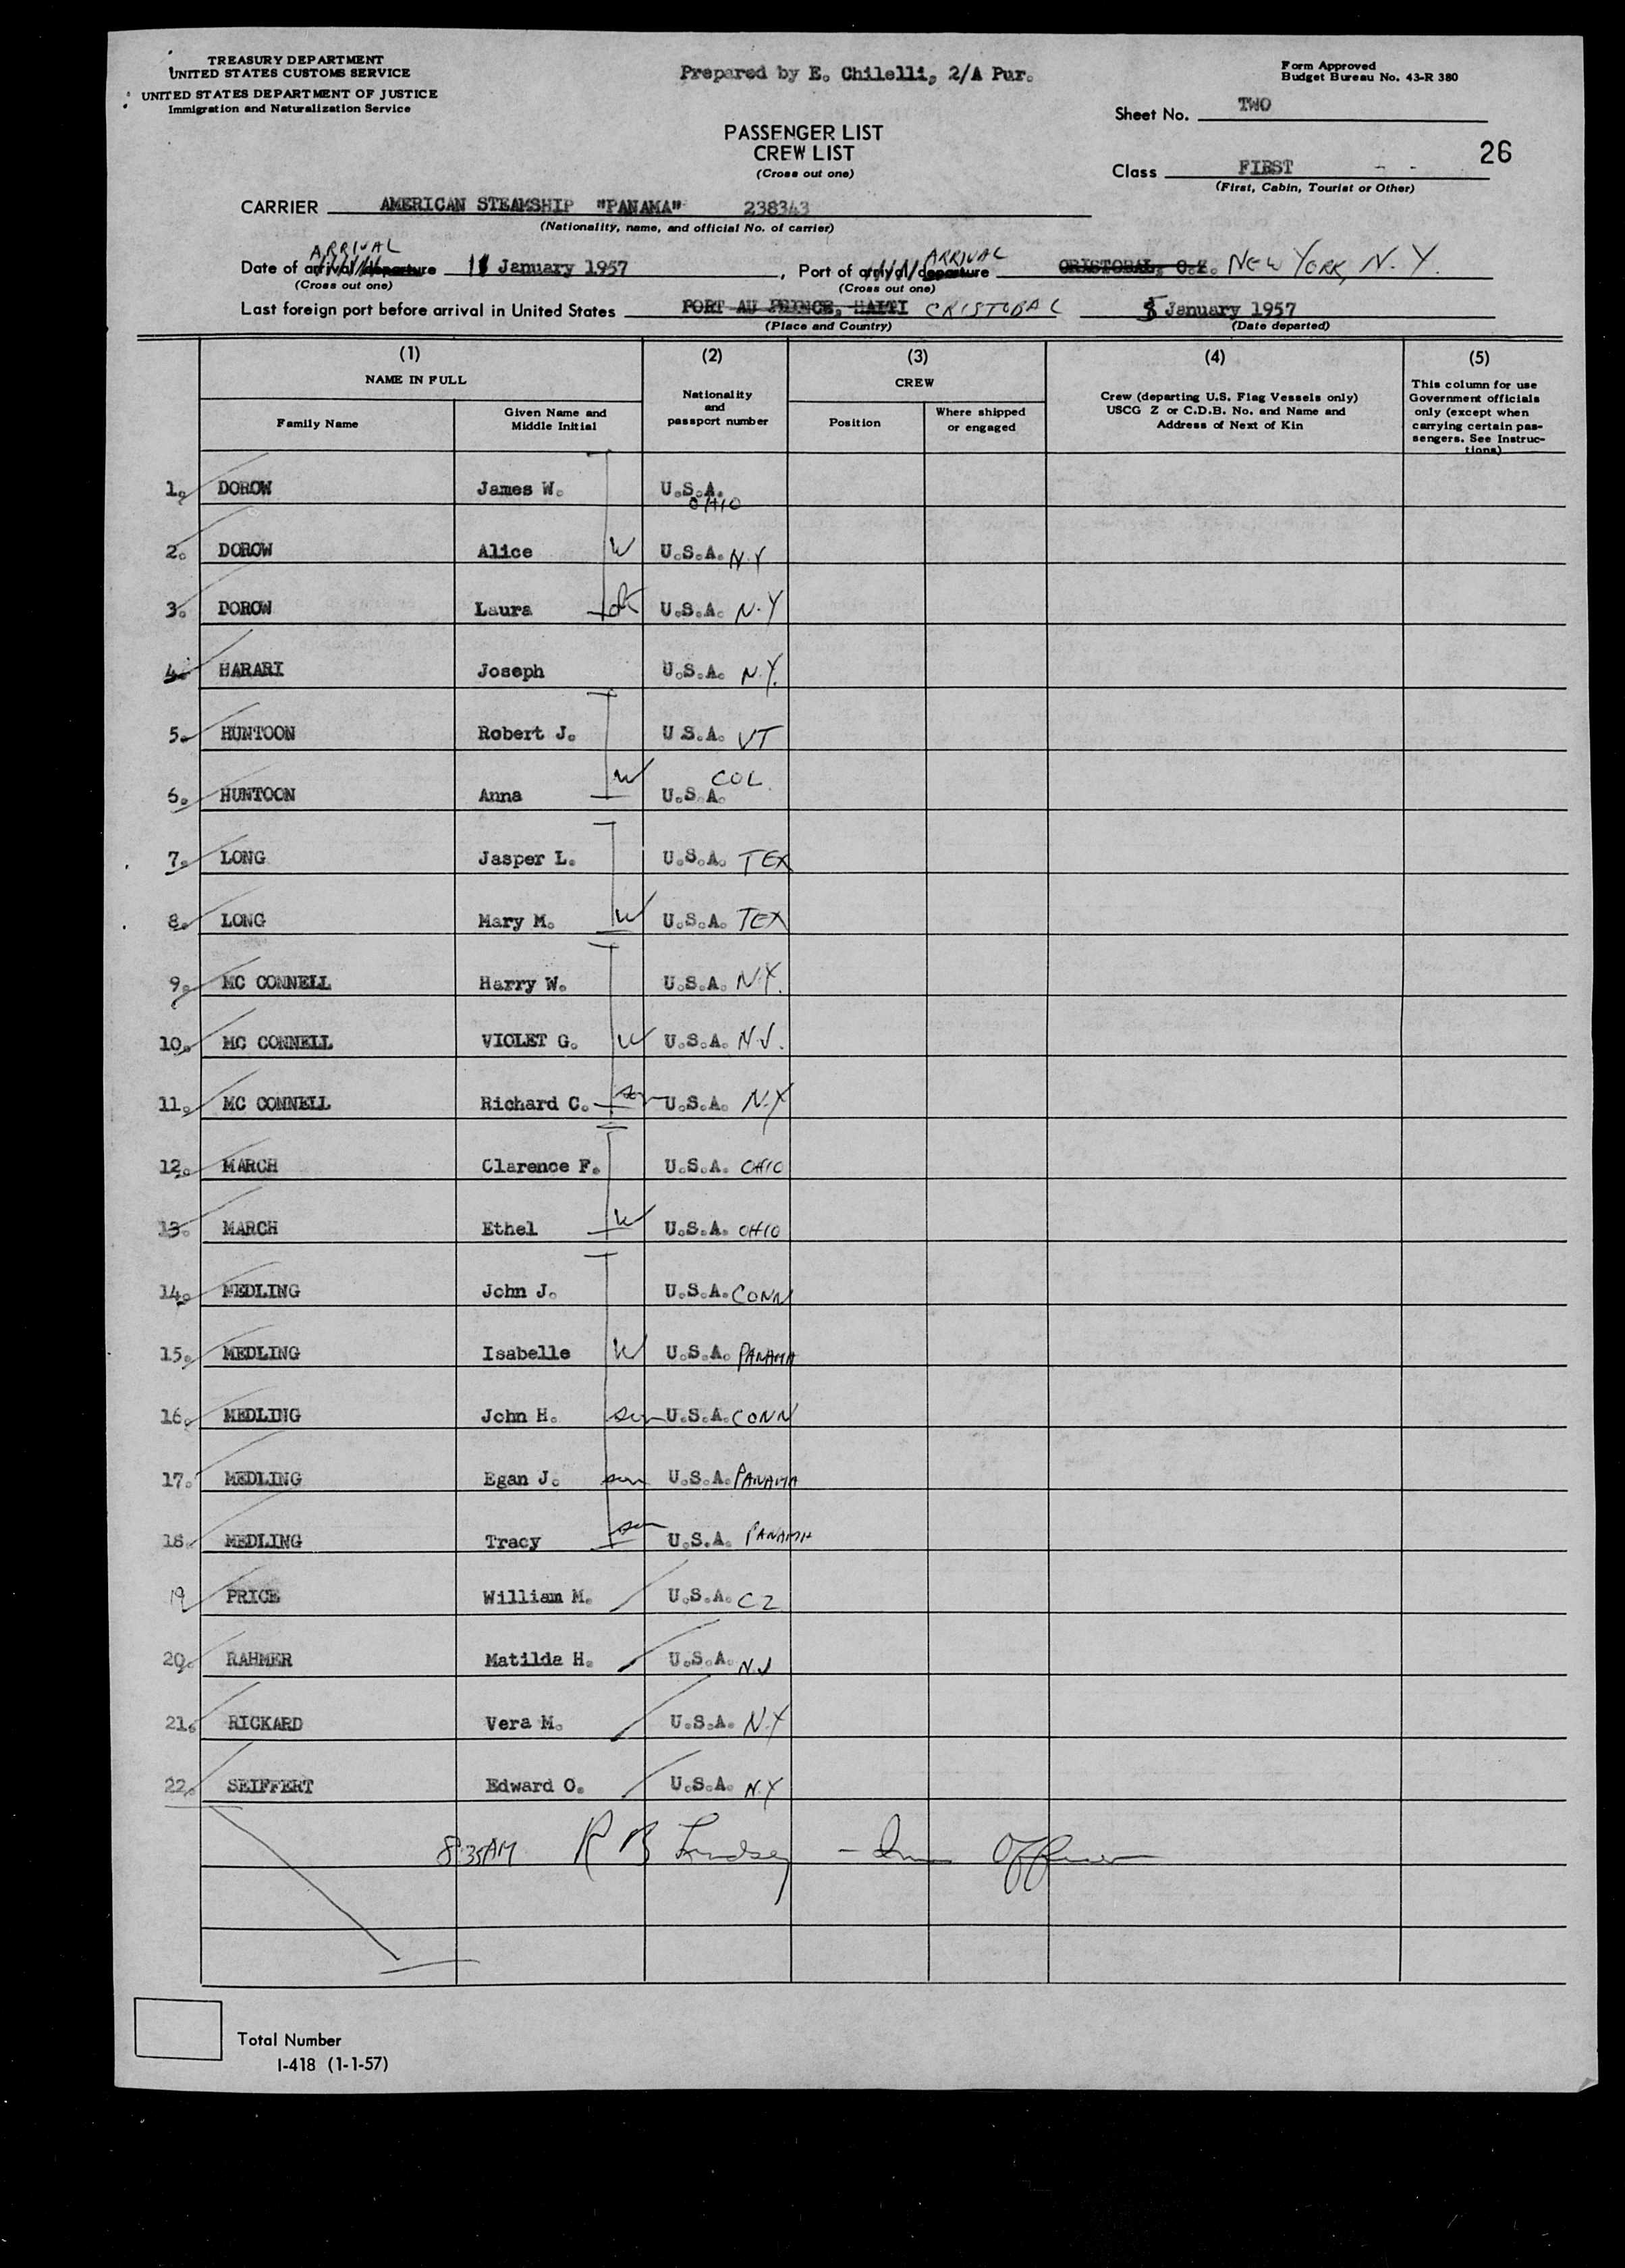 TREASURY DEPARTMENT
UNITED STATES CUSTOMS SERVICE
UNITED STATES DEPARTMENT OF JUSTICE
Immigration and Naturalization Service
Prepared by E. Chilelli, 2/A Pur.
Form Approved
Budget Bureau No. 43-R 380
Sheet No. TWO
PASSENGER LIST
CREW LIST
(Cross out one)
26
Class FIRST
(First, Cabin, Tourist or Other)
CARRIER AMERICAN STEAMSHIP "PANAMA" 238343
(Nationality, name, and official No. of carrier)
ARRIVAL ARRIVAL
Date of arrival/departure 11 January 1957, Port of arrival/departure CRISTOBAL, C.Z. NEW YORK, N.Y.
(Cross out one) (Cross out one)
Last foreign port before arrival in United States PORT AU PRINCE, HAITI CRISTOBAL 5 January 1957
(Place and Country) (Date departed)
(1) (2) (3) (4) (5)
NAME IN FULL
Family Name
Given Name and Middle Initial
Nationality and passport number
CREW
Position
Where shipped or engaged
Crew (departing U.S. Flag Vessels only)
USCG Z or C.D.B. No. and Name and
Address of Next of Kin
This column for use
Government officials
only (except when
carrying certain pas-
sengers. See Instruc-
tions)
1. DOROW James W. U.S.A. OHIO
2. DOROW Alice W U.S.A. N.Y
3. DOROW Laura U.S.A. N.Y
4. HARARI Joseph U.S.A. N.Y.
5. HUNTOON Robert J. U.S.A. VT
6. HUNTOON Anna W U.S.A. COL.
7. LONG Jasper L. U.S.A. TEX
8. LONG Mary M. W U.S.A. TEX
9. MC CONNELL Harry W. U.S.A. N.Y.
10. MC CONNELL VIOLET G. W U.S.A. N.J.
11. MC CONNELL Richard C. son U.S.A. N.Y
12. MARCH Clarence F. U.S.A. OHIO
13. MARCH Ethel W U.S.A. OHIO
14. MEDLING John J. U.S.A. CONN
15. MEDLING Isabelle W U.S.A. PANAMA
16. MEDLING John H. son U.S.A. CONN
17. MEDLING Egan J. son U.S.A. PANAMA
18. MEDLING Tracy son U.S.A. PANAMA
19 PRICE William M. U.S.A. CZ
20. RAHMER Matilda H. U.S.A. NJ
21. RICKARD Vera M. U.S.A. N.Y
22. SEIFFERT Edward O. U.S.A. N.Y
8:35AM R B Lindsey - Imm Officer
Total Number
I-418 (1-1-57)